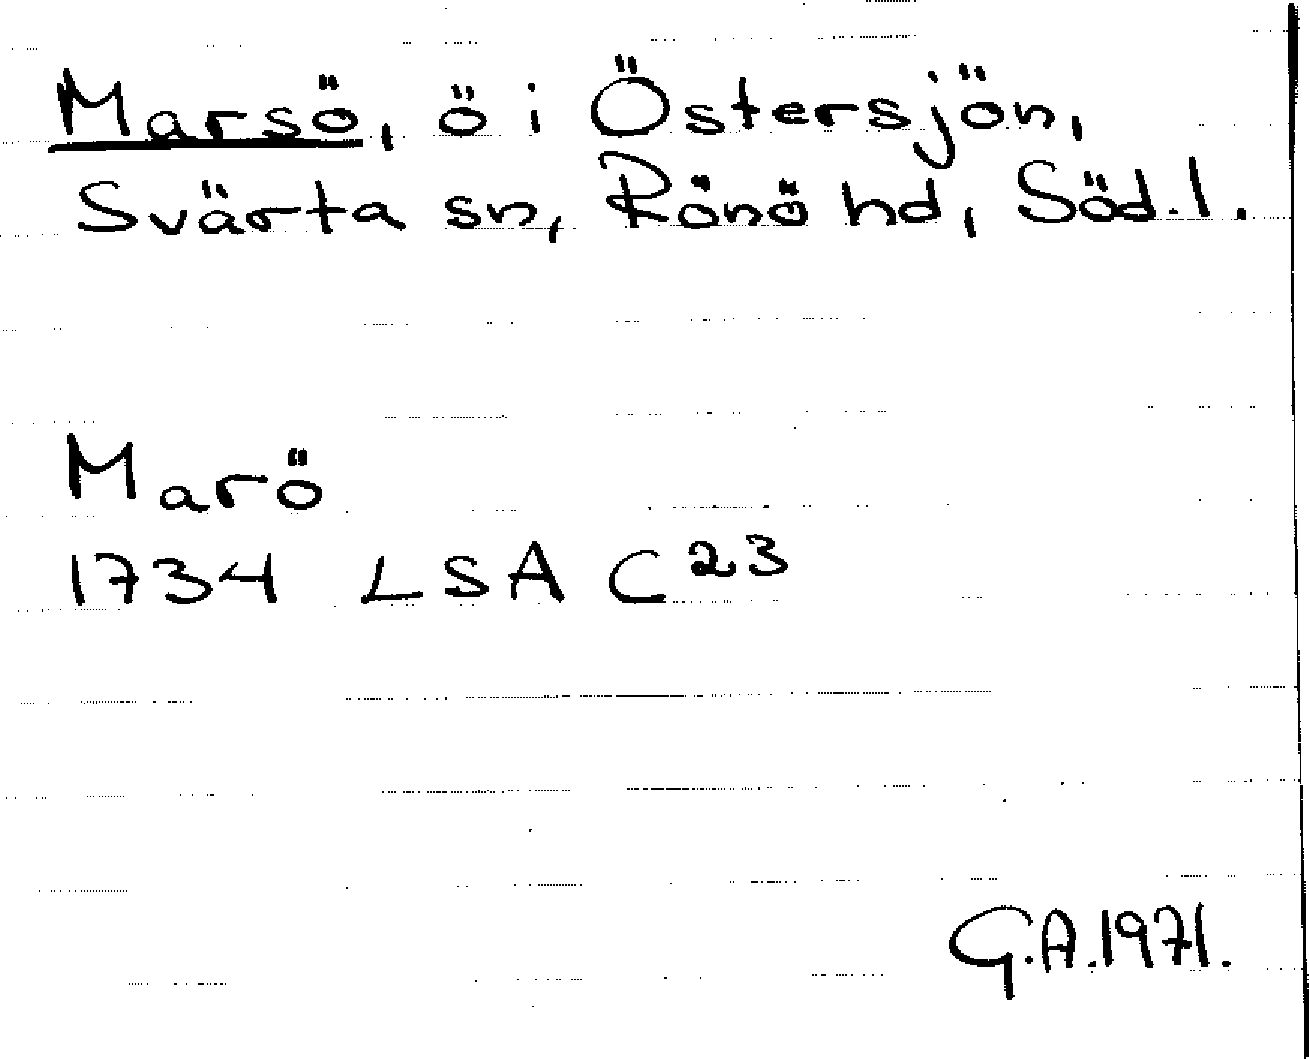 Marsö, ö i Östersjön,
Svärta sn, Rönö hd, Söd.l.
Marö
1734 LSA C23
G.A.1971.